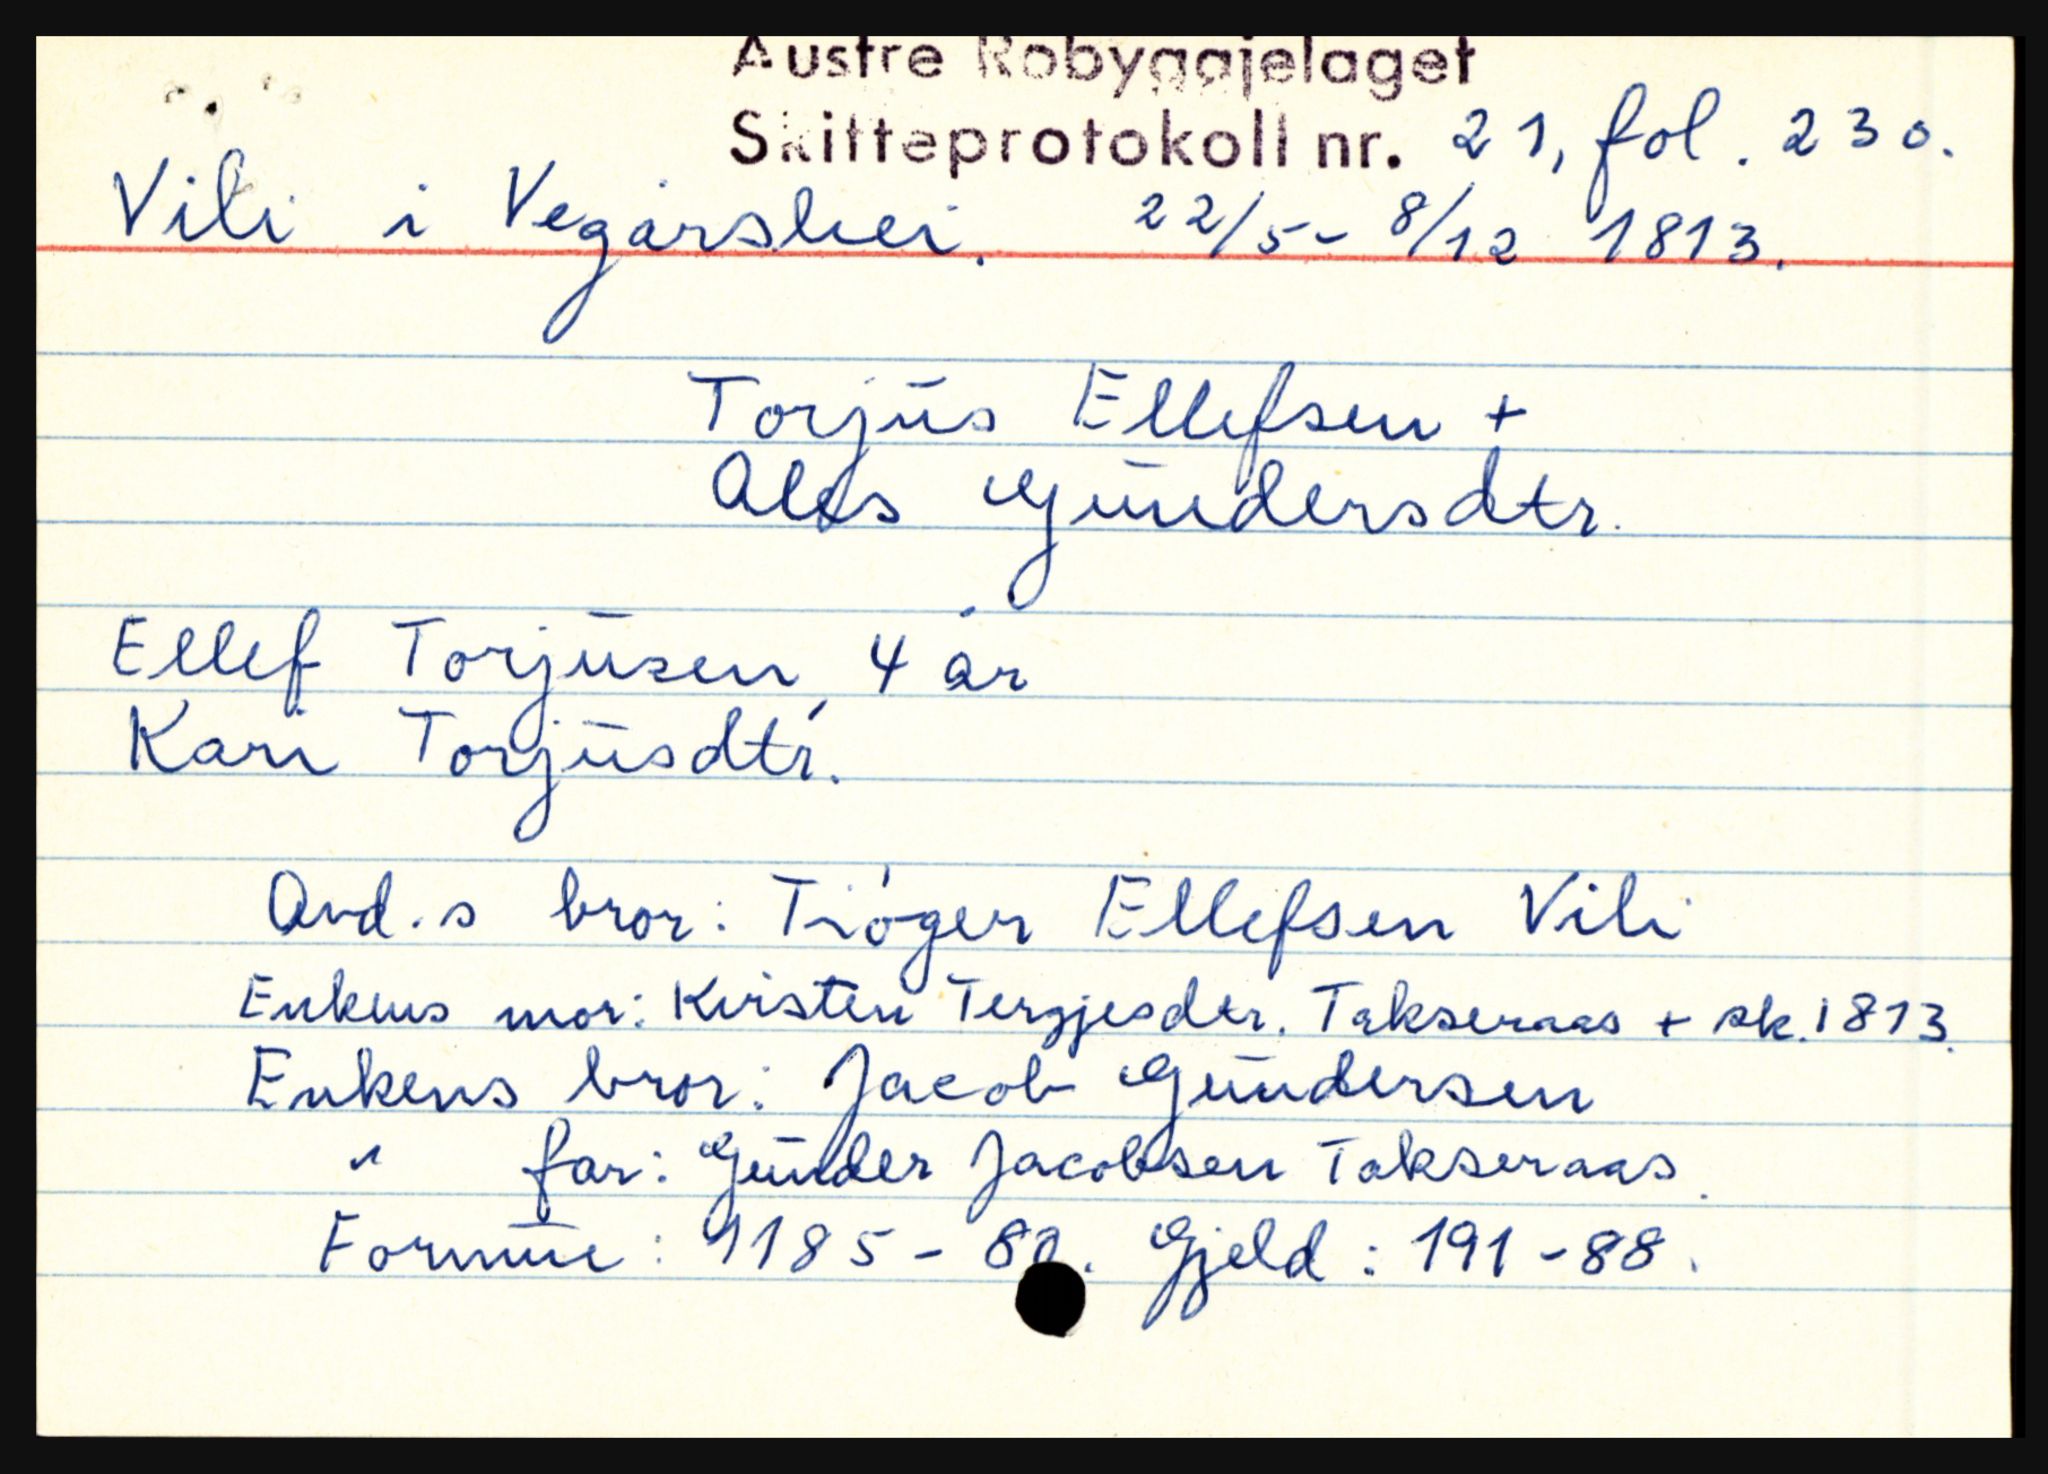 Austre Robyggjelaget
Skitteprotokoll nr. 21, fol. 230.
Vili i Vegårshei. 22/5 - 8/12 1813.
Torjus Ellefsen +
Ales Gundersdtr.
Ellef Torjusen, 4 år
Kari Torjusdtr.
Avd.s bror: Tióger Ellefsen Vili
Enkens mor: Kirsten Tergjesdtr. Takseraas + sk. 1813.
Enkens bror: Jacob Gundersen
" far: Gunder Jacobsen Takseraas.
Formue: 1185 - 80. Gjeld: 191 - 88.